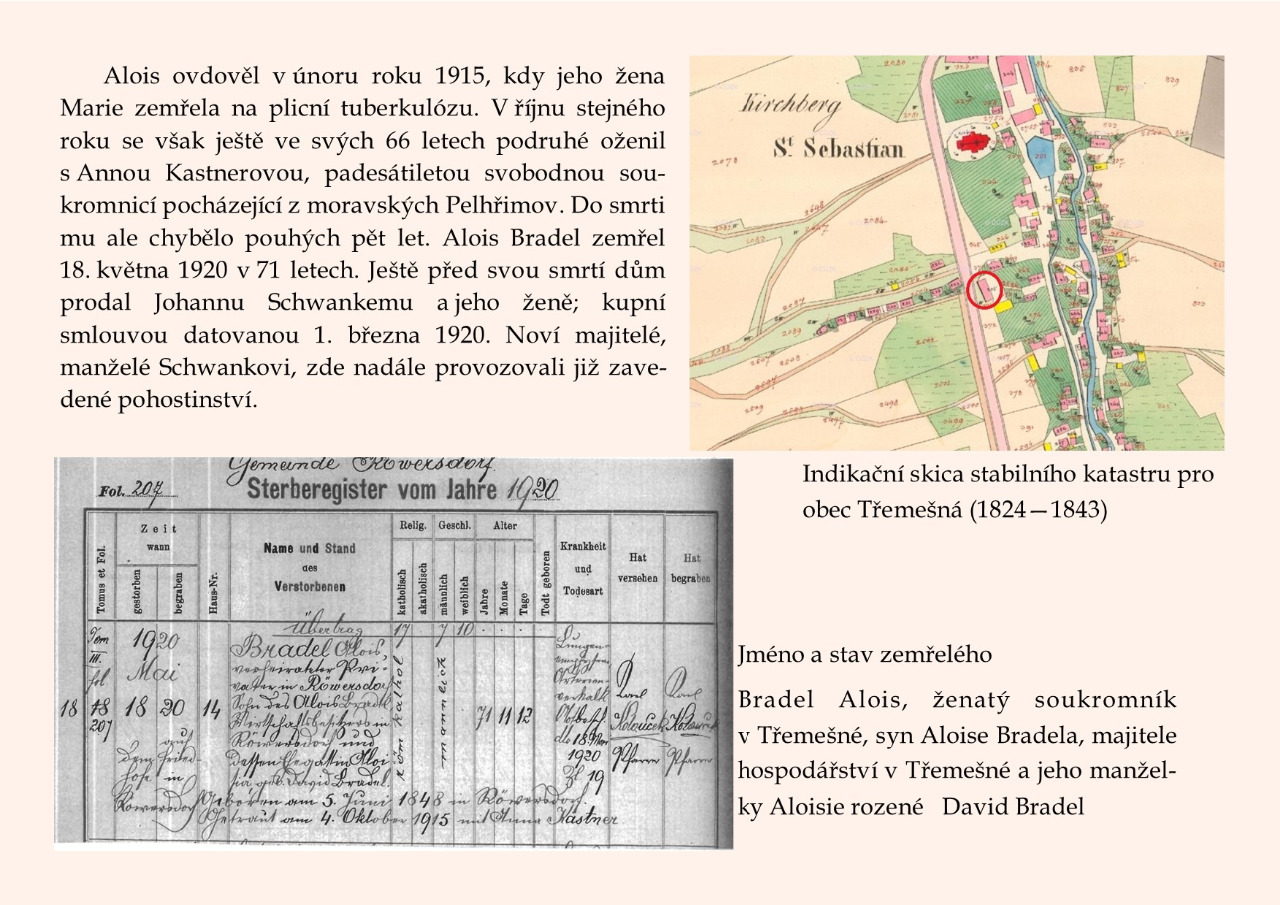 Alois ovdověl v únoru roku 1915, kdy jeho žena
Marie zemřela na plicní tuberkulózu. V říjnu stejného
roku se však ještě ve svých 66 letech podruhé oženil
s Annou Kastnerovou, padesátiletou svobodnou sou-
kromnicí pocházející z moravských Pelhřimov. Do smrti
mu ale chybělo pouhých pět let. Alois Bradel zemřel
18. května 1920 v 71 letech. Ještě před svou smrtí dům
prodal Johannu Schwankemu a jeho ženě; kupní
smlouvou datovanou 1. března 1920. Noví majitelé,
manželé Schwankovi, zde nadále provozovali již zave-
dené pohostinství.
Kirchberg
St Sebastian
Indikační skica stabilního katastru pro
obec Třemešná (1824—1843)
Gemeinde Röwersdorf
Fol. 207
Sterberegister vom Jahre 1920
Tomus et Fol.
Zeit wann
gestorben
begraben
Haus-Nr.
Name und Stand
des
Verstorbenen
Relig.
katholisch
akatholisch
Geschl.
männlich
weiblich
Alter
Jahre
Monate
Tage
Todt geboren
Krankheit
und
Todesart
Hat
versehen
Hat
begraben
Übertrag 17 7 10
18
Tom
III.
fol.
207
1920
Mai
18 20
auf
dem Fried-
hofe in
Röwersdorf
14
Bradel Alois,
verheirateter Pri-
vater in Röwersdorf
Sohn des Alois Bradel
Wirtschaftsbesitzers in
Röwersdorf und
dessen Ehegattin Aloi-
sia geb. David Bradel.
röm kathol
männlich
71 11 12
1920
Zl 19
Karl
Pfarrer
Karl
Pfarrer
Geboren am 5. Juni 1848 in Röwersdorf.
Getraut am 4. Oktober 1915 mit Anna Kastner
Jméno a stav zemřelého
Bradel Alois, ženatý soukromník
v Třemešné, syn Aloise Bradela, majitele
hospodářství v Třemešné a jeho manžel-
ky Aloisie rozené David Bradel